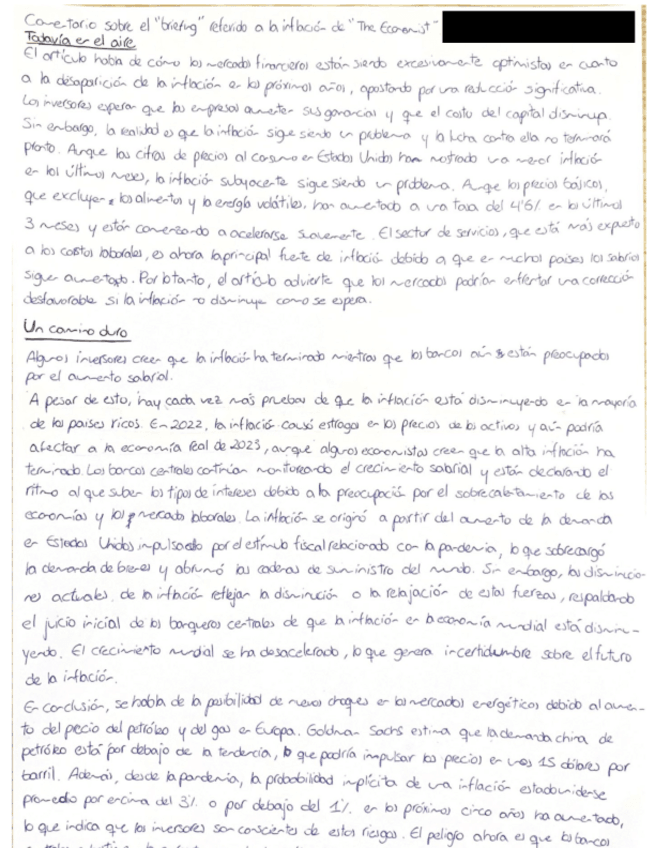 Comentario sobre el "briefing" referido a la inflación de "The Economist"
Todavía en el aire
El artículo habla de cómo los mercados financieros están siendo excesivamente optimistas en cuanto
a la desaparición de la inflación en los próximos años, apostando por una reducción significativa.
Los inversores esperan que las empresas aumenten sus ganancias y que el costo del capital disminuya.
Sin embargo, la realidad es que la inflación sigue siendo un problema y la lucha contra ella no terminará
pronto. Aunque las cifras de precios al consumo en Estados Unidos han mostrado una menor inflación
en los últimos meses, la inflación subyacente sigue siendo un problema. Aunque los precios básicos,
que excluyen los alimentos y la energía volátiles, han aumentado a una tasa del 4'6% en los últimos
3 meses y están comenzando a acelerarse suavemente. El sector de servicios, que está más expuesto
a los costos laborales, es ahora la principal fuente de inflación debido a que en muchos países los salarios
siguen aumentado. Por lo tanto, el artículo advierte que los mercados podrían enfrentar una corrección
desfavorable si la inflación no disminuye como se espera.
Un camino duro
Algunos inversores creen que la inflación ha terminado mientras que los bancos aún están preocupados
por el aumento salarial.
A pesar de esto, hay cada vez más pruebas de que la inflación está disminuyendo en la mayoría
de los países ricos. En 2022, la inflación causó estragos en los precios de los activos y aún podría
afectar a la economía real de 2023, aunque algunos economistas creen que la alta inflación ha
terminado. Los bancos centrales continúan monitoreando el crecimiento salarial y están declarando el
ritmo al que suben los tipos de intereses debido a la preocupación por el sobrecalentamiento de las
economías y los mercado laborales. La inflación se originó a partir del aumento de la demanda
en Estados Unidos impulsado por el estímulo fiscal relacionado con la pandemia, lo que sobrecargó
la demanda de bienes y abrumó las cadenas de suministro del mundo. Sin embargo, las disminucio-
nes actuales de la inflación reflejan la disminución o la relajación de estas fuerzas, respaldando
el juicio inicial de los banqueros centrales de que la inflación en la economía mundial está disminu-
yendo. El crecimiento mundial se ha desacelerado, lo que genera incertidumbre sobre el futuro
de la inflación.
En conclusión, se habla de la posibilidad de nuevos choques en los mercados energéticos debido al aumen-
to del precio del petróleo y del gas en Europa. Goldman Sachs estima que la demanda china de
petróleo está por debajo de la tendencia, lo que podría impulsar los precios en unos 15 dólares por
barril. Además, desde la pandemia, la probabilidad implícita de una inflación estadounidense
promedio por encima del 3% o por debajo del 1% en los próximos cinco años ha aumentado,
lo que indica que los inversores son conscientes de estos riesgos. El peligro ahora es que los bancos